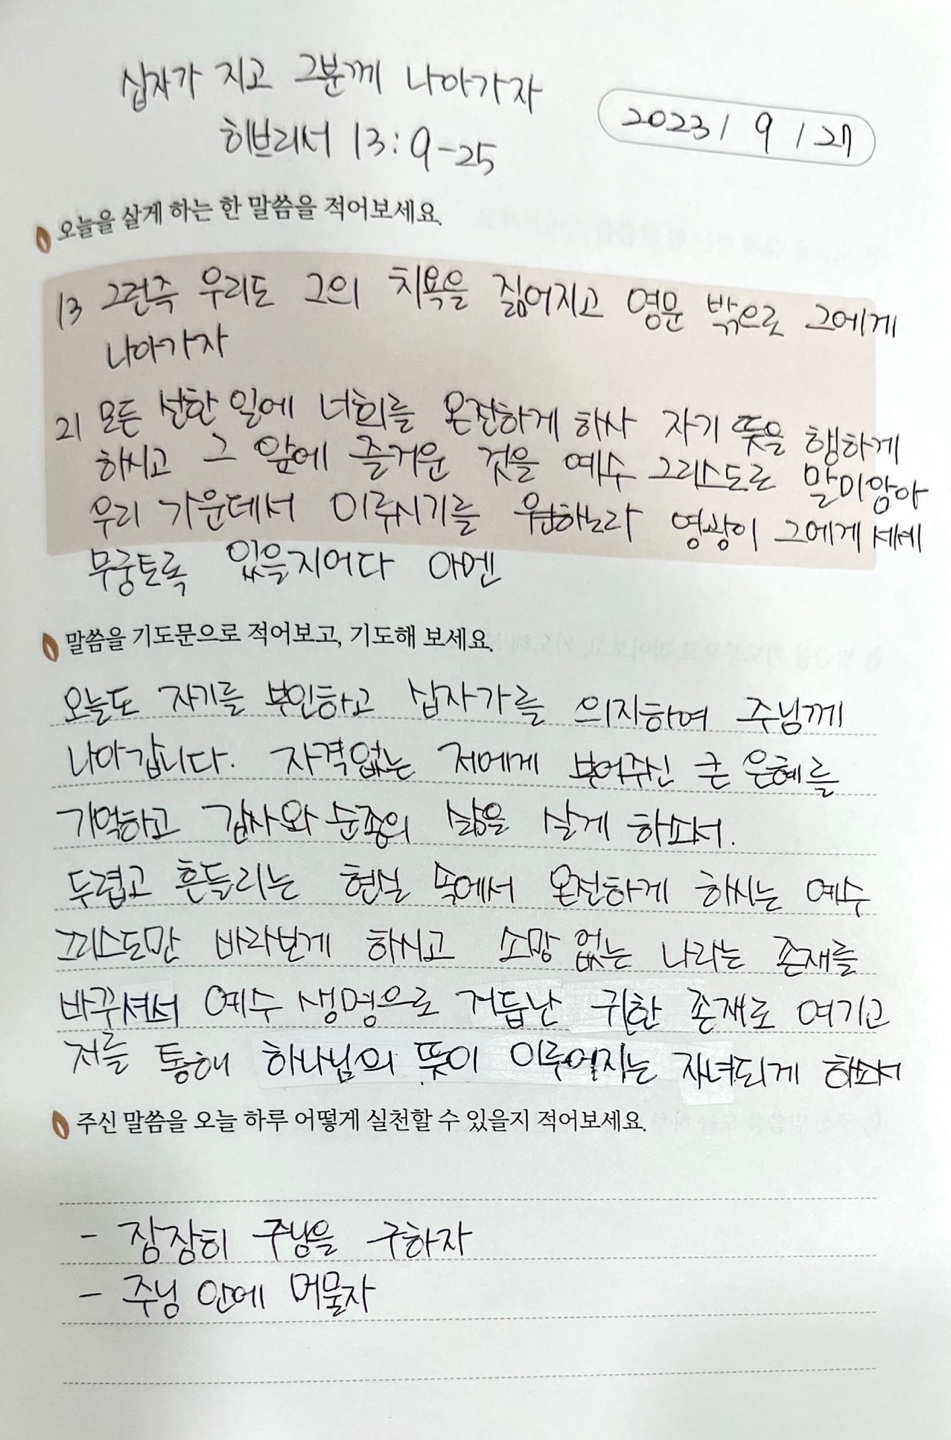 십자가 지고 그분께 나아가자
히브리서 13:9-25
2023/ 9 / 27
오늘을 살게 하는 한 말씀을 적어보세요.
13 그런즉 우리도 그의 치욕을 짊어지고 영문 밖으로 그에게
나아가자
21 모든 선한 일에 너희를 온전하게 하사 자기 뜻을 행하게
하시고 그 앞에 즐거운 것을 예수 그리스도로 말미암아
우리 가운데서 이루시기를 원하노라 영광이 그에게 세세
무궁토록 있을지어다 아멘
말씀을 기도문으로 적어보고, 기도해 보세요.
오늘도 자기를 부인하고 십자가를 의지하여 주님께
나아갑니다. 자격없는 저에게 부어주신 큰 은혜를
기억하고 감사와 순종의 삶을 살게 하소서.
두렵고 흔들리는 현실 속에서 온전하게 하시는 예수
그리스도만 바라보게 하시고 소망 없는 나라는 존재를
바꾸셔서 예수 생명으로 거듭난 귀한 존재로 여기고
저를 통해 하나님의 뜻이 이루어지는 자녀되게 하소서
주신 말씀을 오늘 하루 어떻게 실천할 수 있을지 적어보세요.
- 잠잠히 주님을 구하자
- 주님 안에 머물자